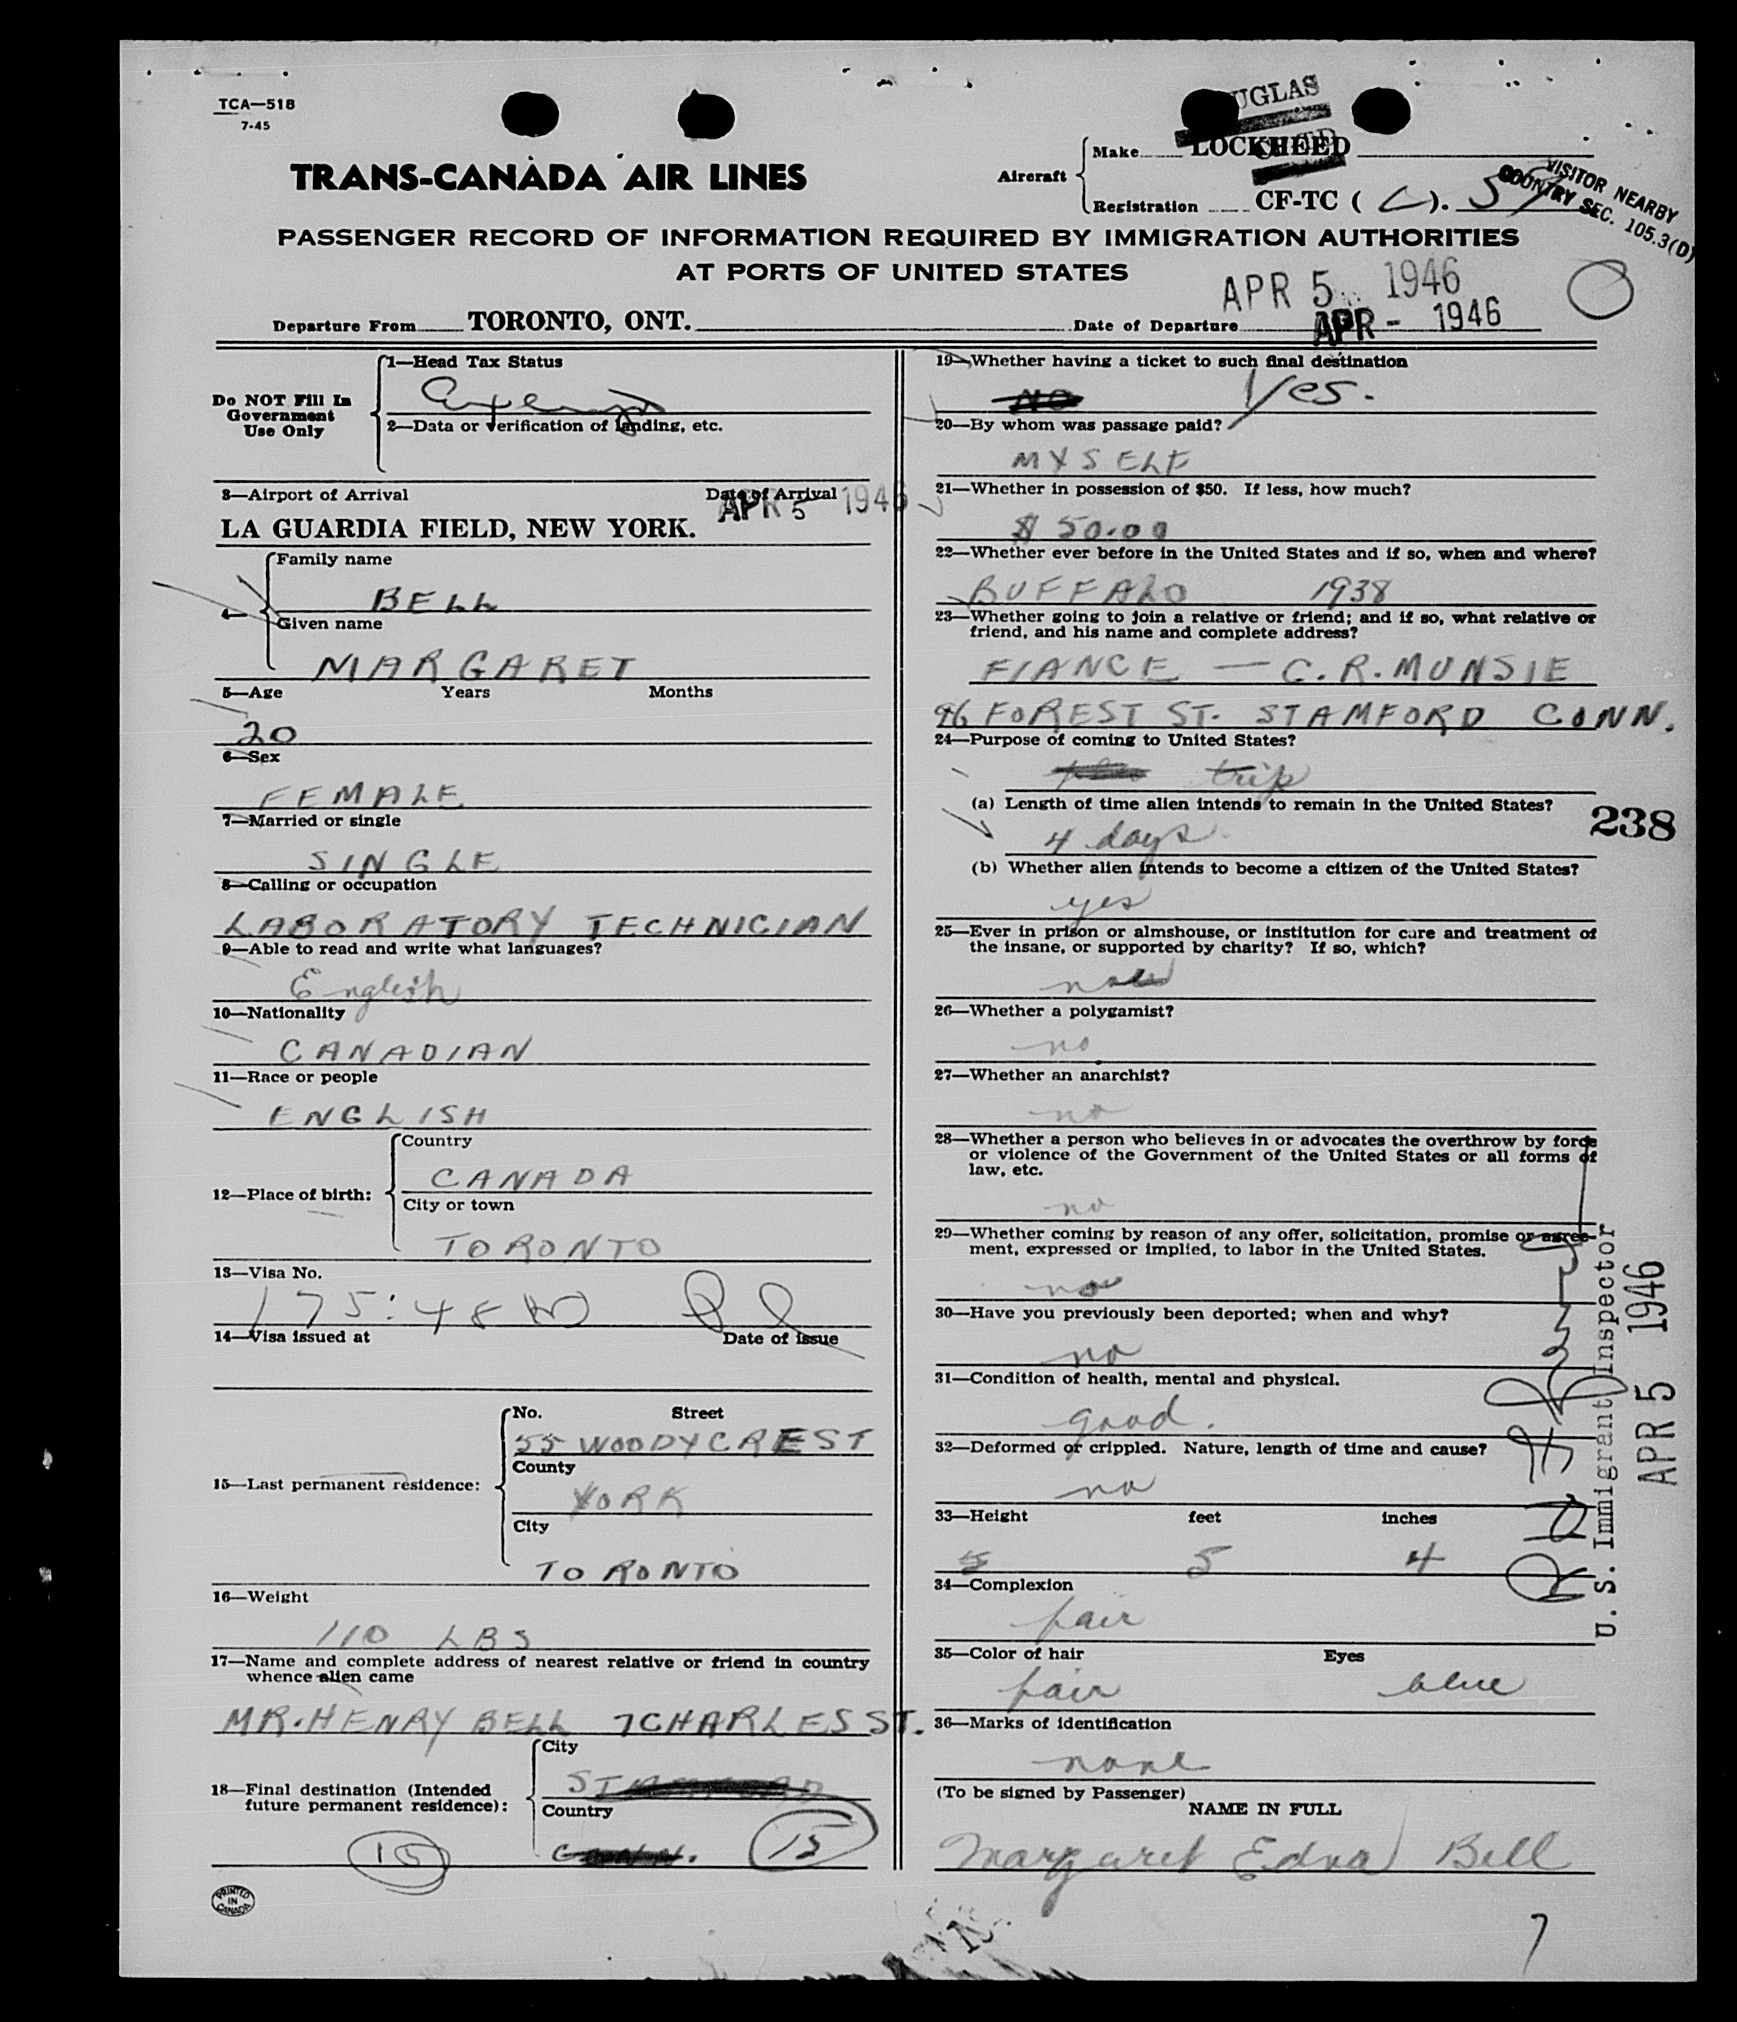 TCA—518
7-45
TRANS-CANADA AIR LINES
UGLAS
Aircraft
Make LOCKHEED
Registration CF-TC ( C ).
VISITOR NEARBY
COUNTRY SEC. 105.3(D)
PASSENGER RECORD OF INFORMATION REQUIRED BY IMMIGRATION AUTHORITIES
AT PORTS OF UNITED STATES
APR 5 1946
Departure From TORONTO, ONT. Date of Departure APR - 1946
Do NOT Fill In
Government
Use Only
1—Head Tax Status
2—Data or verification of landing, etc.
3—Airport of Arrival Date of Arrival
APR 5 1946
LA GUARDIA FIELD, NEW YORK.
4—
Family name
BELL
Given name
MARGARET
5—Age Years Months
20
6—Sex
FEMALE
7—Married or single
SINGLE
8—Calling or occupation
LABORATORY TECHNICIAN
9—Able to read and write what languages?
English
10—Nationality
CANADIAN
11—Race or people
ENGLISH
12—Place of birth:
Country
CANADA
City or town
TORONTO
13—Visa No.
14—Visa issued at Date of issue
15—Last permanent residence:
No. Street
55 WOODYCREST
County
YORK
City
TORONTO
16—Weight
110 LBS
17—Name and complete address of nearest relative or friend in country
whence alien came
MR. HENRY BELL 7 CHARLES ST.
18—Final destination (Intended
future permanent residence):
City
Country
15
15
PRINTED
IN
CANADA
19—Whether having a ticket to such final destination
NO Yes.
20—By whom was passage paid?
MYSELF
21—Whether in possession of $50. If less, how much?
$ 50.00
22—Whether ever before in the United States and if so, when and where?
BUFFALO 1938
23—Whether going to join a relative or friend; and if so, what relative or
friend, and his name and complete address?
FIANCE — C. R. MUNSIE
96 FOREST ST. STAMFORD CONN.
24—Purpose of coming to United States?
trip
(a) Length of time alien intends to remain in the United States?
4 days
(b) Whether alien intends to become a citizen of the United States?
yes
25—Ever in prison or almshouse, or institution for care and treatment of
the insane, or supported by charity? If so, which?
no
26—Whether a polygamist?
no
27—Whether an anarchist?
no
28—Whether a person who believes in or advocates the overthrow by force
or violence of the Government of the United States or all forms of
law, etc.
no
29—Whether coming by reason of any offer, solicitation, promise or agree-
ment, expressed or implied, to labor in the United States.
no
30—Have you previously been deported; when and why?
no
31—Condition of health, mental and physical.
good.
32—Deformed or crippled. Nature, length of time and cause?
no
33—Height feet inches
5 5 4
34—Complexion
fair
35—Color of hair Eyes
fair blue
36—Marks of identification
none
(To be signed by Passenger)
NAME IN FULL
Margaret Edna Bell
238
U. S. Immigrant Inspector
APR 5 1946
7